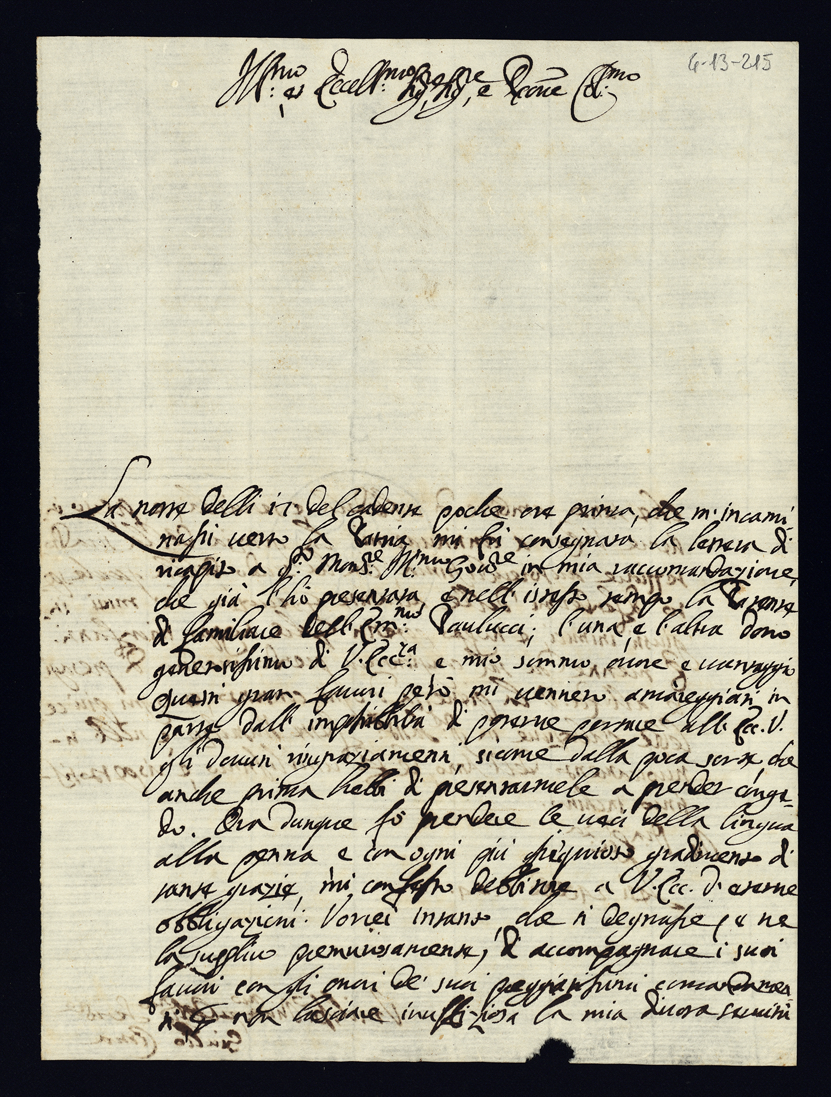 6-13-215
Ill:mo et Eccell:mo Sig:re Sig:re, e Prone Col:mo
La notte delli 17 del cadente poche ore prima, che m'incami
nassi verso la Patria mi fù consegnata la lettera di
ricapito a q.to Mons.re Ill:mo Gov.re in mia raccomandazione,
che già l'hò presentata e nell'istesso tempo la Patente
di familiare dell'Em:mo Paulucci; l'una, e l'altra dono
generosissimo di V. Ecc.za e mio sommo onore e vantaggio
Questi gran favori però mi vennero amareggiati in
parte dall' di poterne portare all' Ecc. V.
gli dovuti ringraziamenti, sicome dalla poca sorte che
anche prima hebbi di presentarmele a prender conge-
do. Ora dunque fò prendere le veci della lingua
alla penna e con ogni più ossequioso gradimento di
tante grazie, mi confesso debbitore a V. Ecc. d'eterne
obbligazioni. Vorrei intanto, che si degnasse, e ne
la supplico premurosamente, di accompagnare i suoi
favori con gli onori de' suoi pregiatissimi comandamen
ti per non lasciare infruttuosa la mia divota servitù